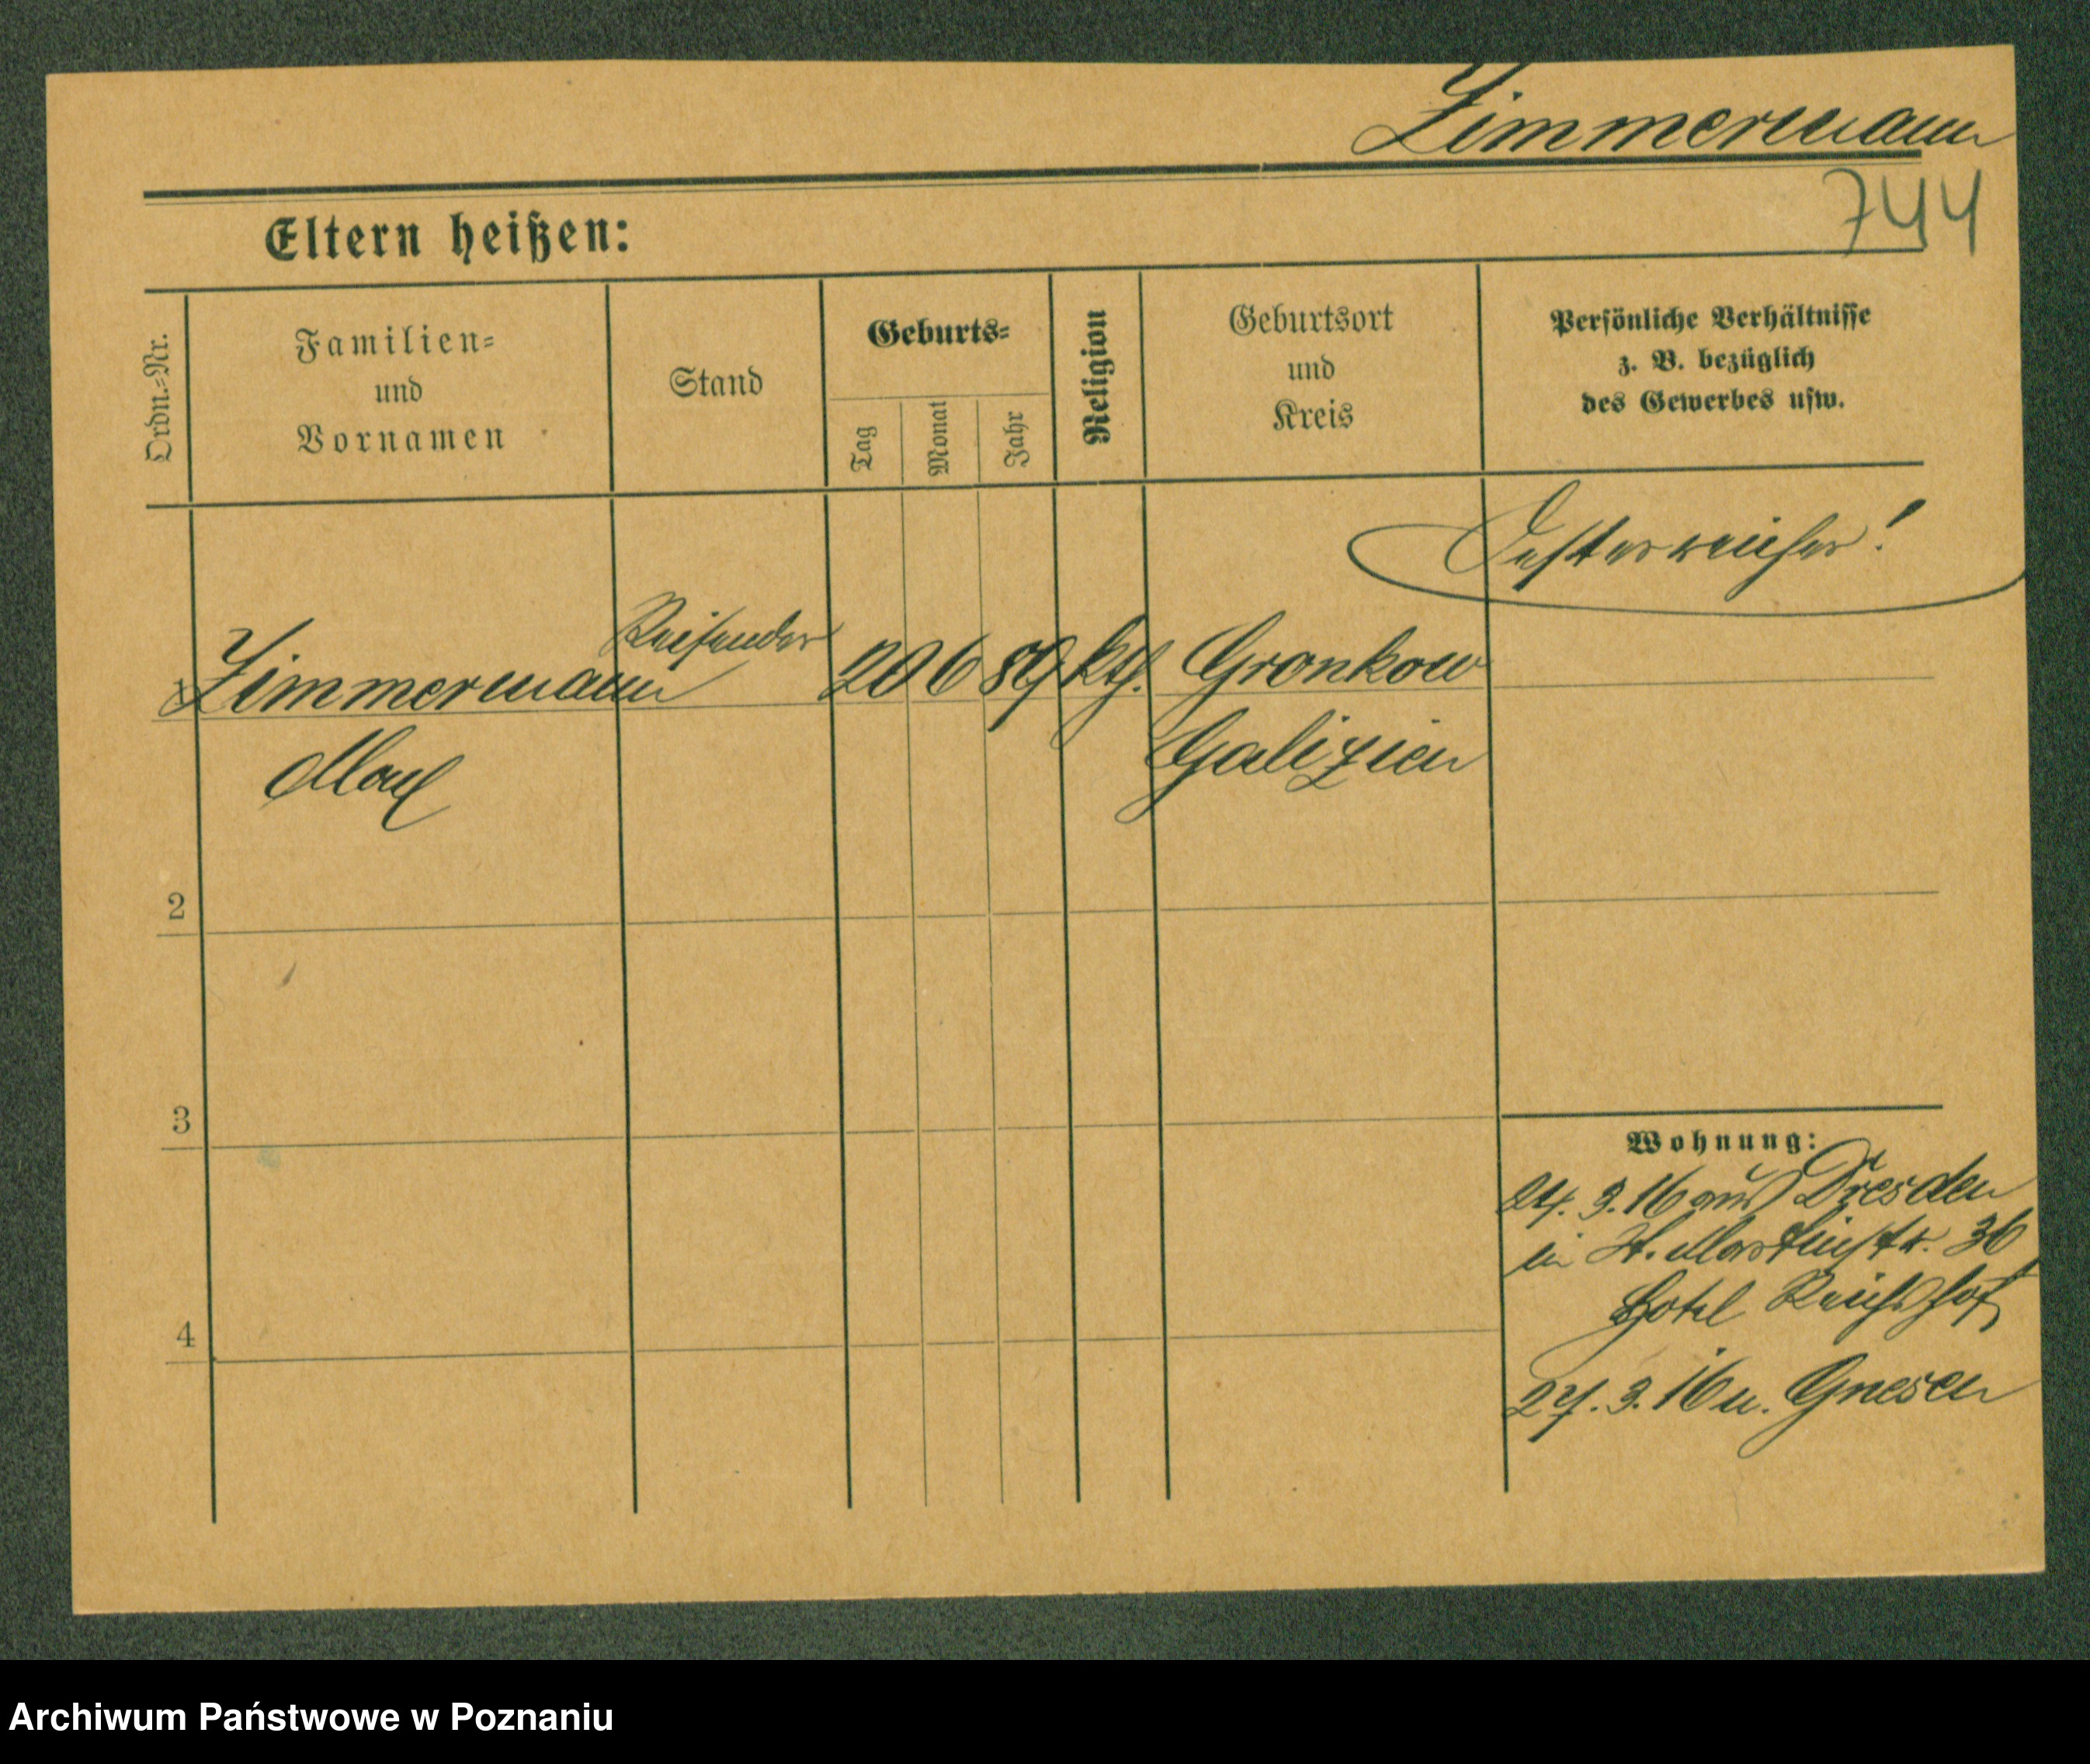 Zimmermann
744
Eltern heißen:
Ordn.=Nr.
Familien=
und
Vornamen
Stand
Geburts=
Tag
Monat
Jahr
Religion
Geburtsort
und
Kreis
Persönliche Verhältnisse
z. B. bezüglich
des Gewerbes usw.
Oesterreicher!
1
Zimmermann
Reisender
20 6 89
kth.
Gronkow
Max
Galizien
2
3
4
Wohnung:
24. 3. 16 aus Dresden
in St. Martinstr. 36
Hotel Reichshof
27. 3. 16 n. Gnesen
Archiwum Państwowe w Poznaniu